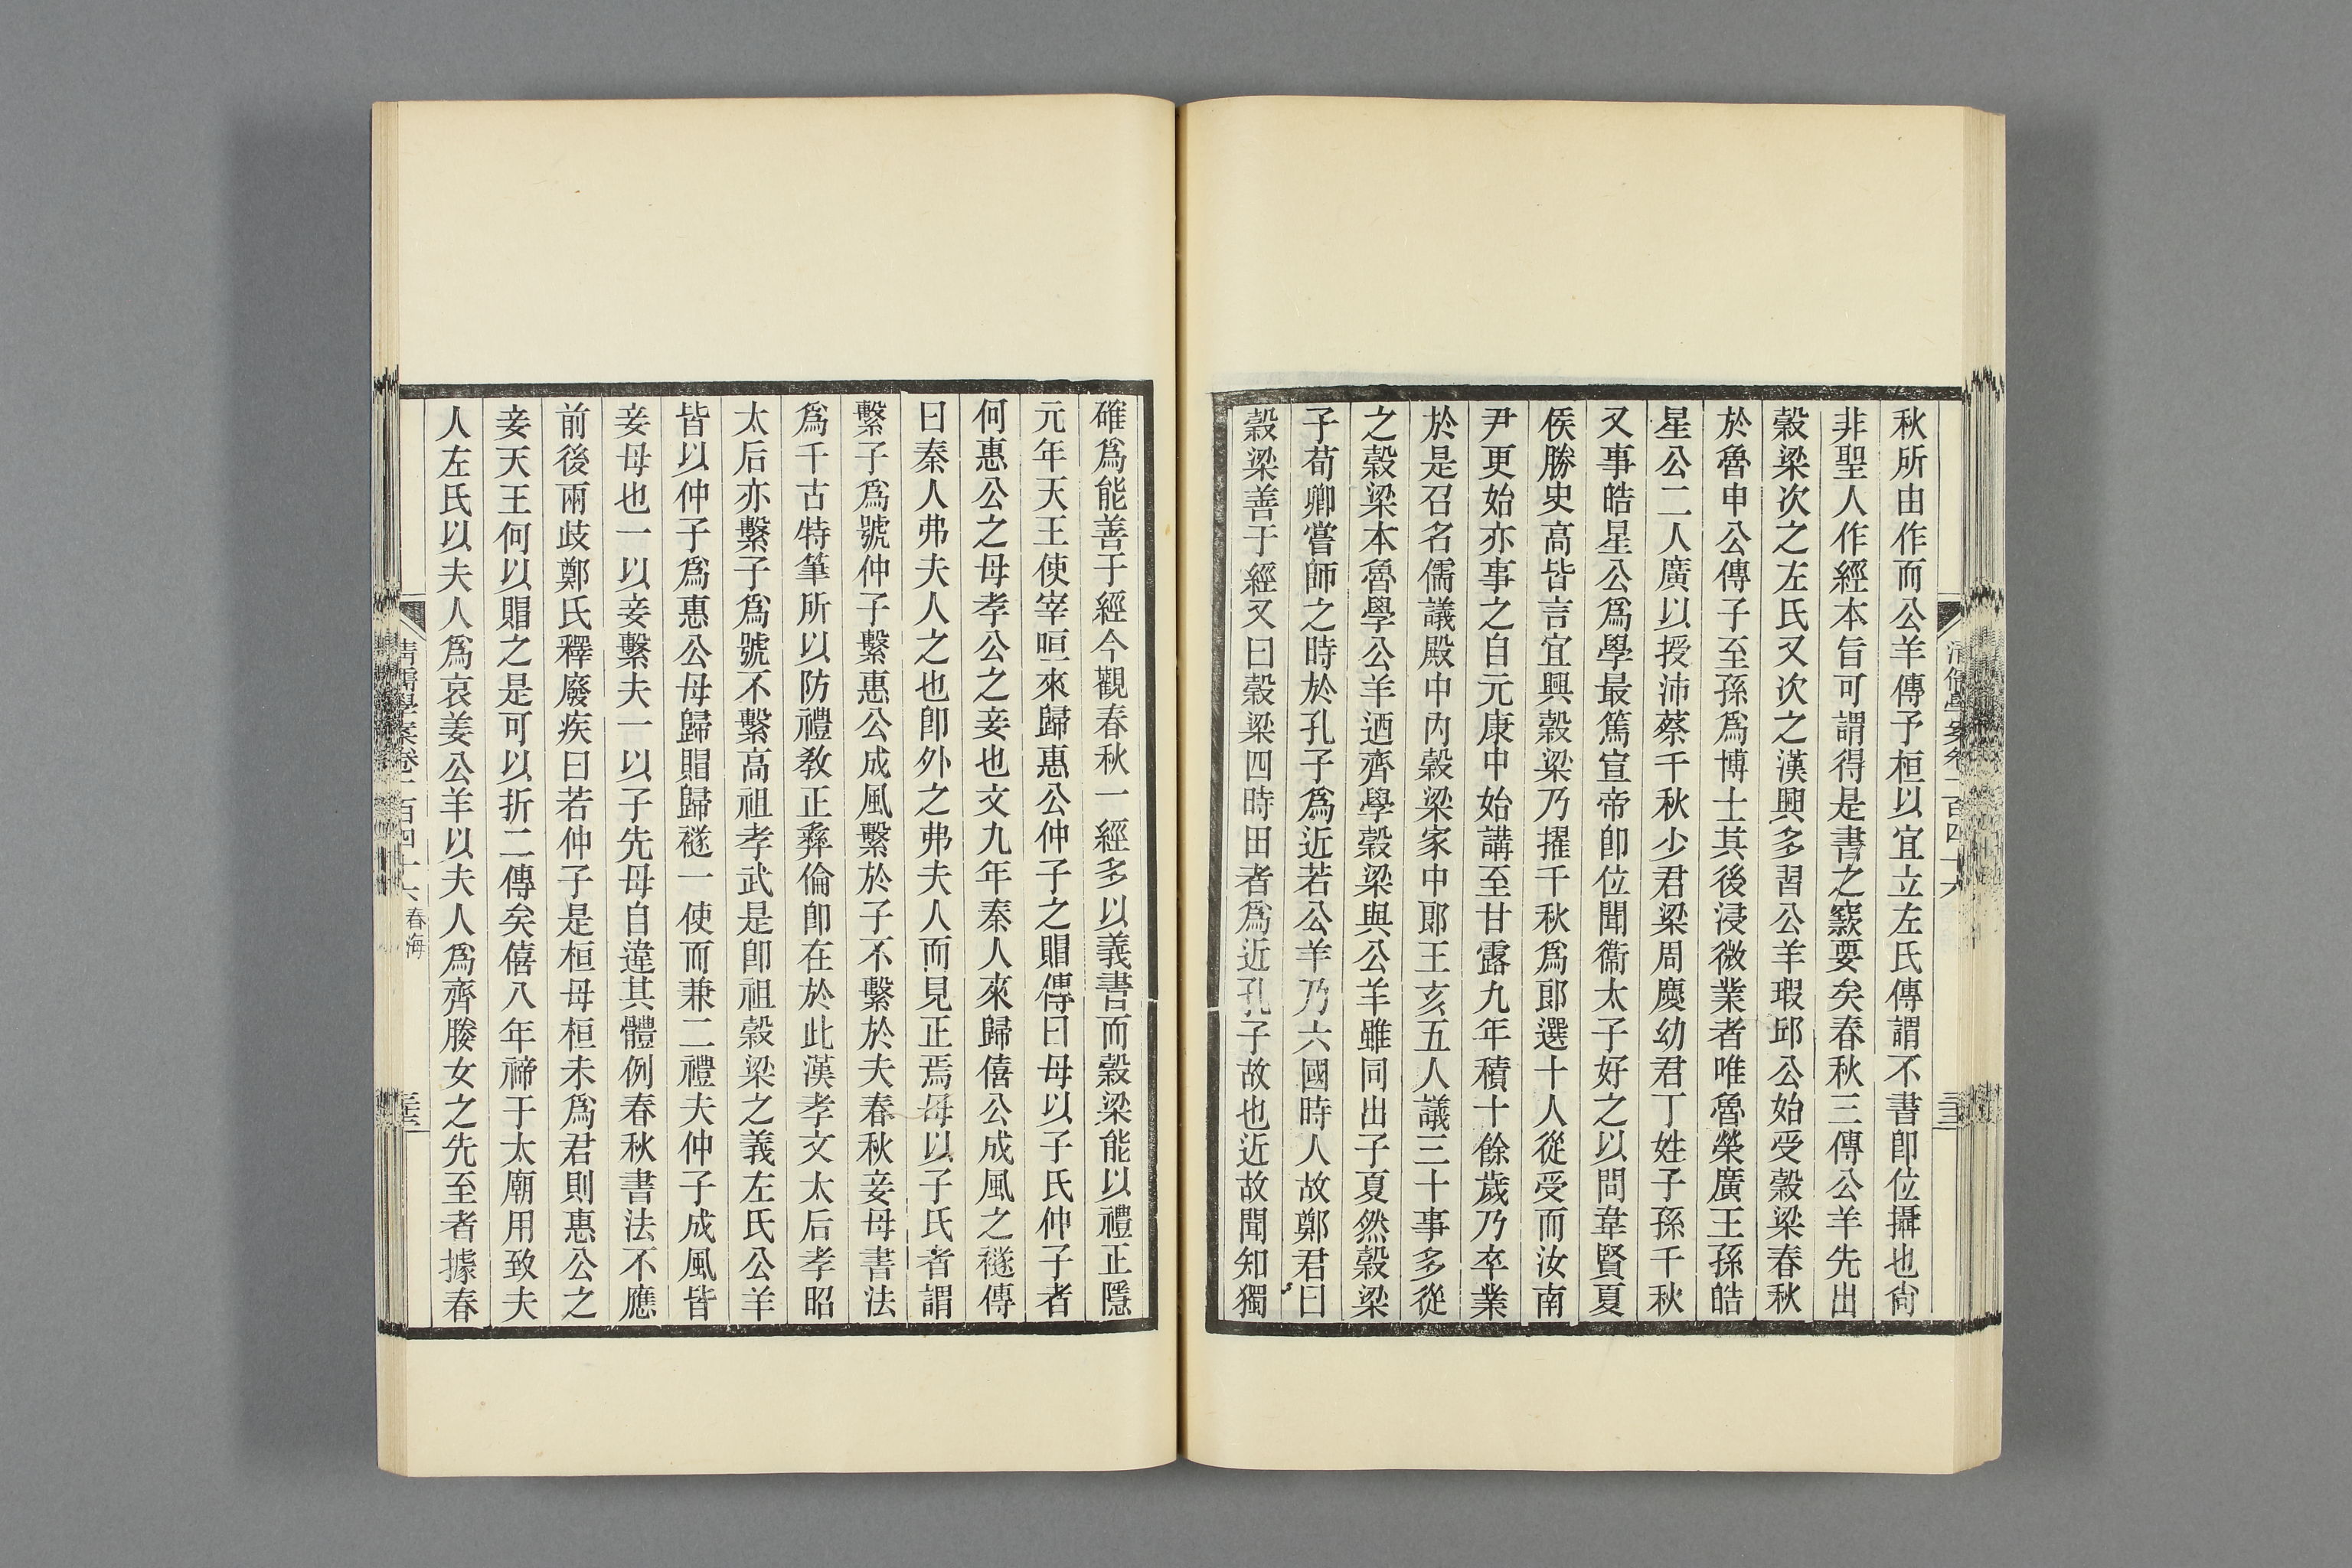 秋所由作而公羊傳予桓以宜立左氏傳謂不書卽位攝也尙
非聖人作經本旨可謂得是書之窾要矣春秋三傳公羊先出
穀梁次之左氏又次之漢興多習公羊瑕邱公始受穀梁春秋
於魯申公傳子至孫爲博士其後浸微業者唯魯榮廣王孫皓
星公二人廣以授沛蔡千秋少君梁周慶幼君丁姓子孫千秋
又事皓星公爲學最篤宣帝卽位聞衞太子好之以問韋賢夏
侯勝史高皆言宜興穀梁乃擢千秋爲郎選十人從受而汝南
尹更始亦事之自元康中始講至甘露九年積十餘歲乃卒業
於是召名儒議殿中內穀梁家中郎王亥五人議三十事多從
之穀梁本魯學公羊迺齊學穀梁與公羊雖同出子夏然穀梁
子荀卿嘗師之時於孔子爲近若公羊乃六國時人故鄭君曰
穀梁善于經又曰穀梁四時田者爲近孔子故也近故聞知獨
確爲能善于經今觀春秋一經多以義書而穀梁能以禮正隱
元年天王使宰咺來歸惠公仲子之賵傳曰母以子氏仲子者
何惠公之母孝公之妾也文九年秦人來歸僖公成風之襚傳
曰秦人弗夫人之也卽外之弗夫人而見正焉母以子氏者謂
繫子爲號仲子繫惠公成風繫於子不繫於夫春秋妾母書法
爲千古特筆所以防禮敎正彝倫卽在於此漢孝文太后孝昭
太后亦繫子爲號不繫高祖孝武是卽祖穀梁之義左氏公羊
皆以仲子爲惠公母歸賵歸襚一使而兼二禮夫仲子成風皆
妾母也一以妾繫夫一以子先母自違其體例春秋書法不應
前後兩歧鄭氏釋廢疾曰若仲子是桓母桓未爲君則惠公之
妾天王何以賵之是可以折二傳矣僖八年禘于太廟用致夫
人左氏以夫人爲哀姜公羊以夫人爲齊媵女之先至者據春
清儒學案卷一百四十六 春海